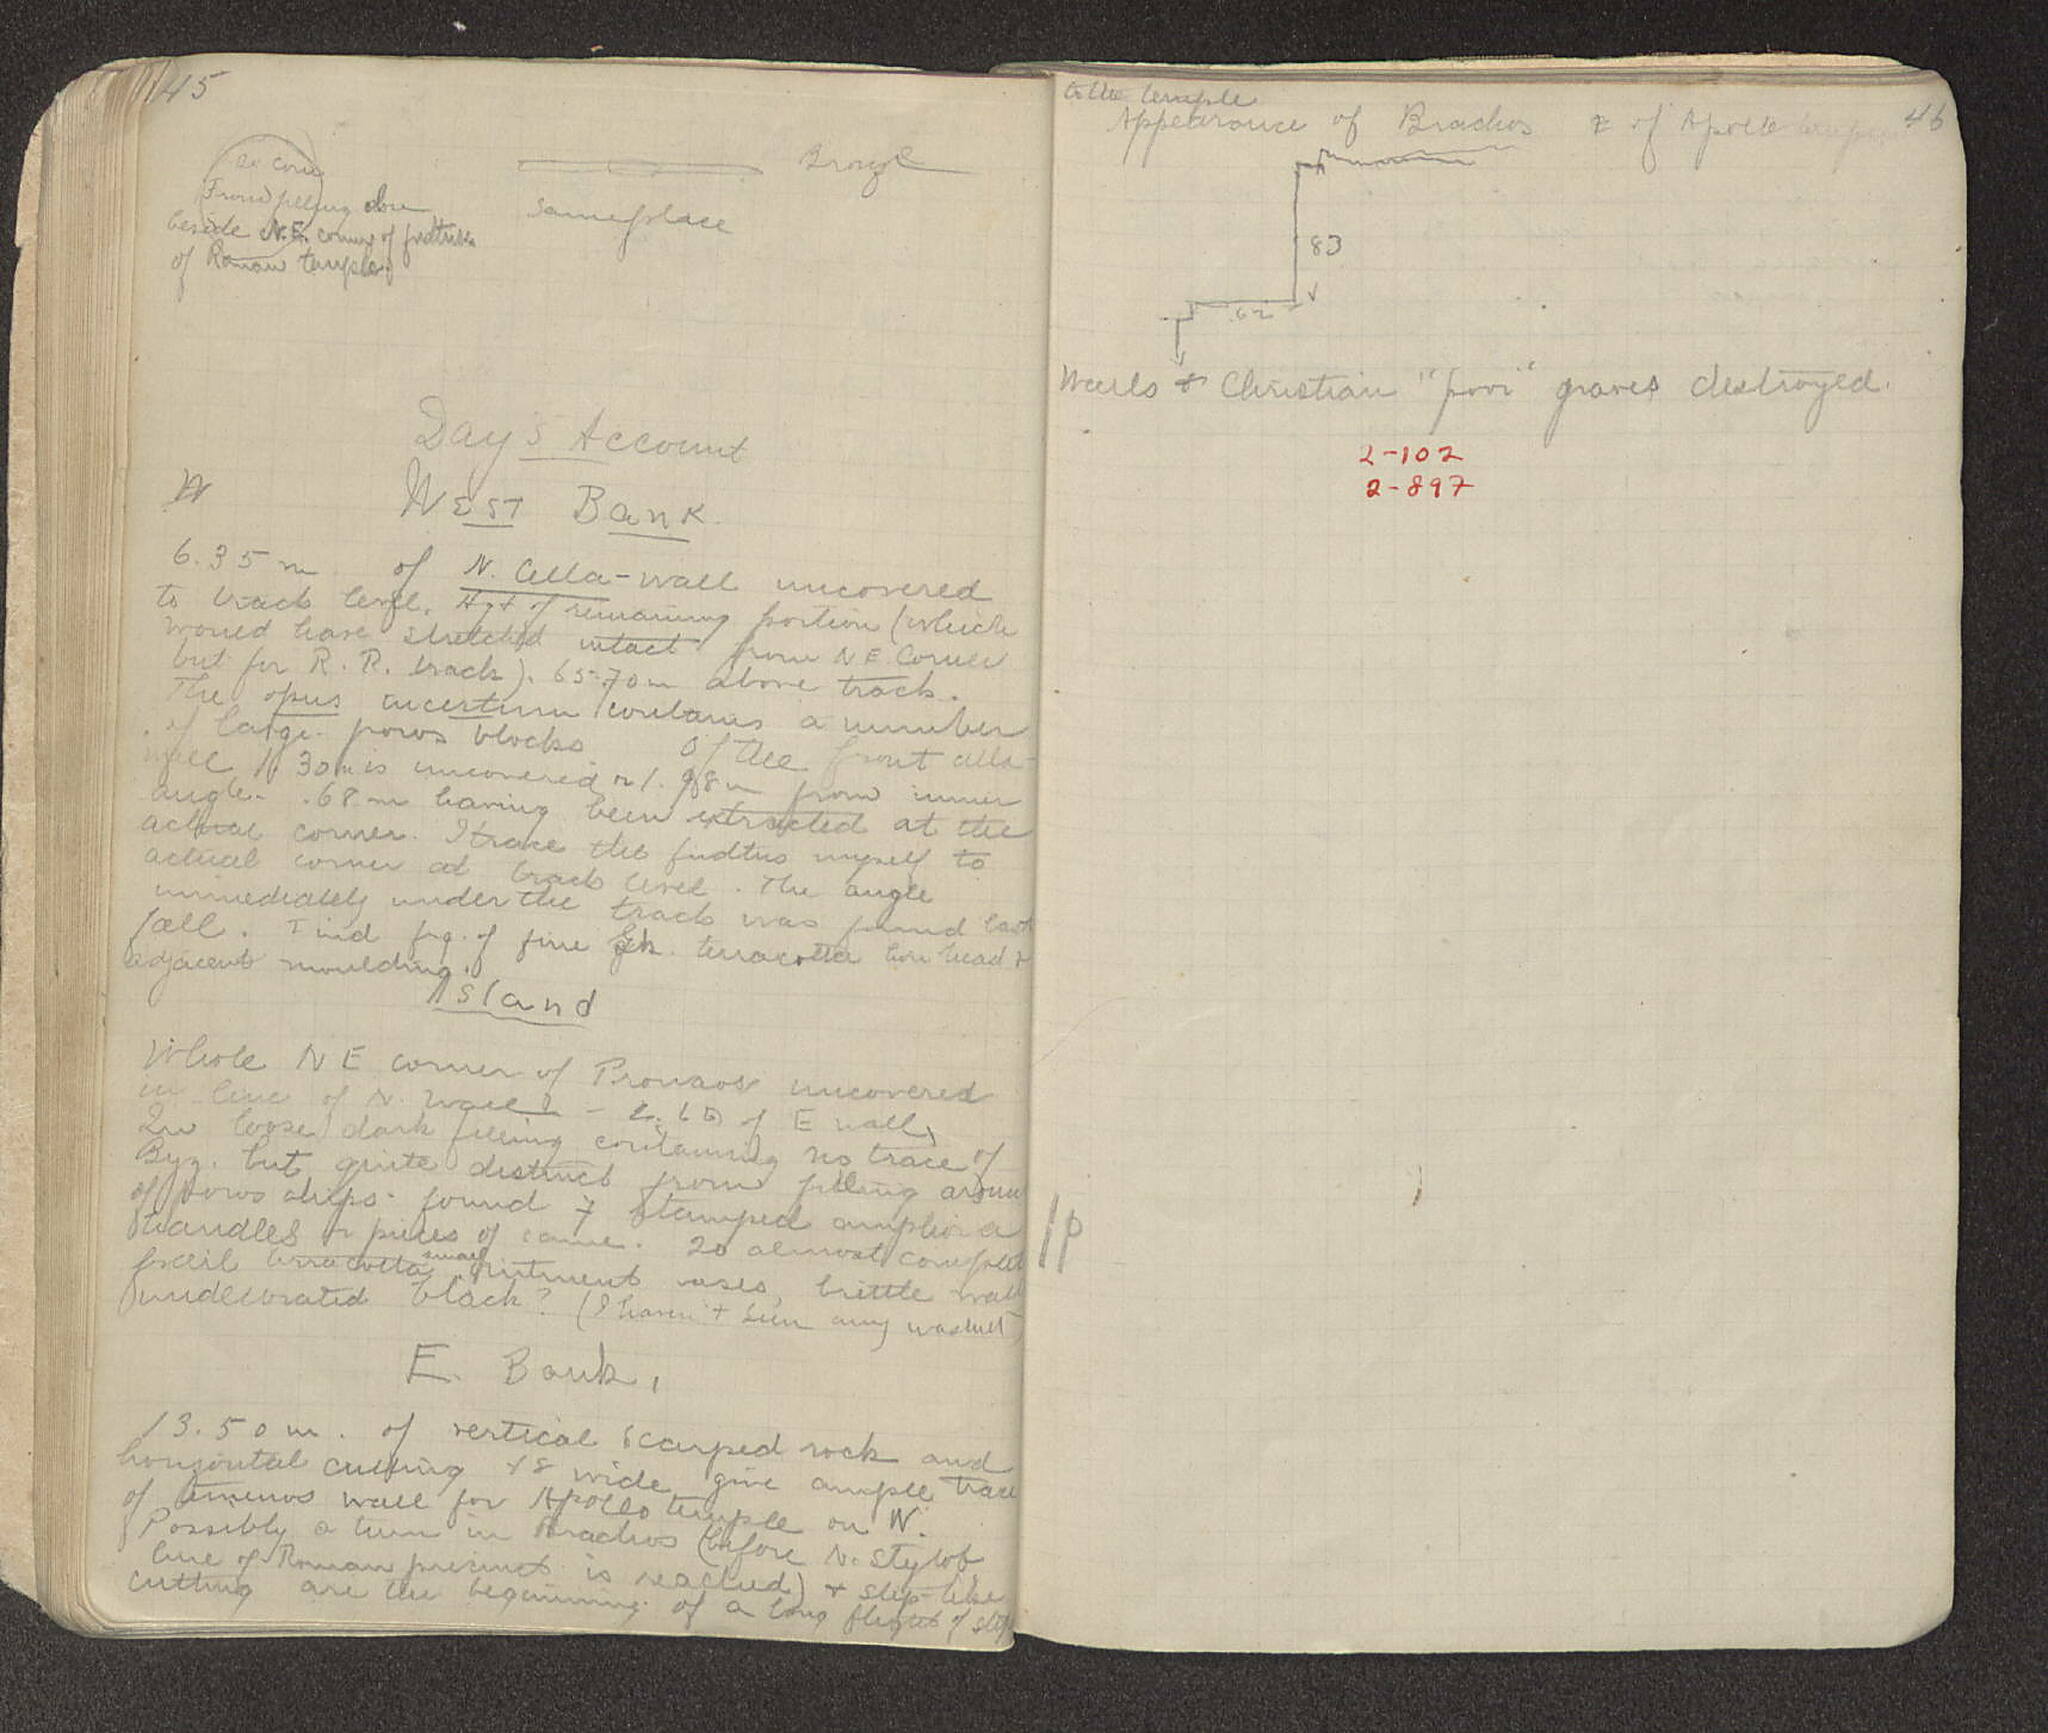 45
ae coin
From filling close
beside N.E. corner of fndtns
of Roman temple.
Bronze
Same place
Day's Account
W
West Bank.
6.35 m of N. Cella-wall uncovered
to track level. Hgt of remaining portion (which
would have stretched intact from NE Corner
but for R. R. track). 65-.70 m above track.
The opus incertum contains a number
of large poros blocks Of the front cella
wall 1.30 m is uncovered or 1.98 m from inner
angle. .68 m having been extracted at the
actual corner. I trace the fndtns myself to
actual corner at track level. The angle
immediately under the track was found last
fall. Find frg. of fine Gk. terracotta lion head &
adjacent moulding.
Island
Whole NE corner of Pronaos uncovered
in line of N. Wall - of E wall.
In loose dark filling containing no trace of
Byz. but quite distinct from filling around
of poros chips found 7 stamped amphora
handles or pieces of same. 20 almost complete
frail terracotta small ointment vases, brittle wall
undecorated black? (I haven't seen any washed)
E. Bank.
13.50 m. of vertical scarped rock and
horizontal cutting wide give ample trace
of temenos wall for Apollo temple on W.
Possibly a turn in Brachos (before N. stylob.
line of Roman precinct is reached) & step-like
cutting are the beginning of a long flight of steps
46
to the temple
Appearance of Brachos & of Apollo temple
83
62
Walls & Christian "poor" graves destroyed.
2-102
2-897